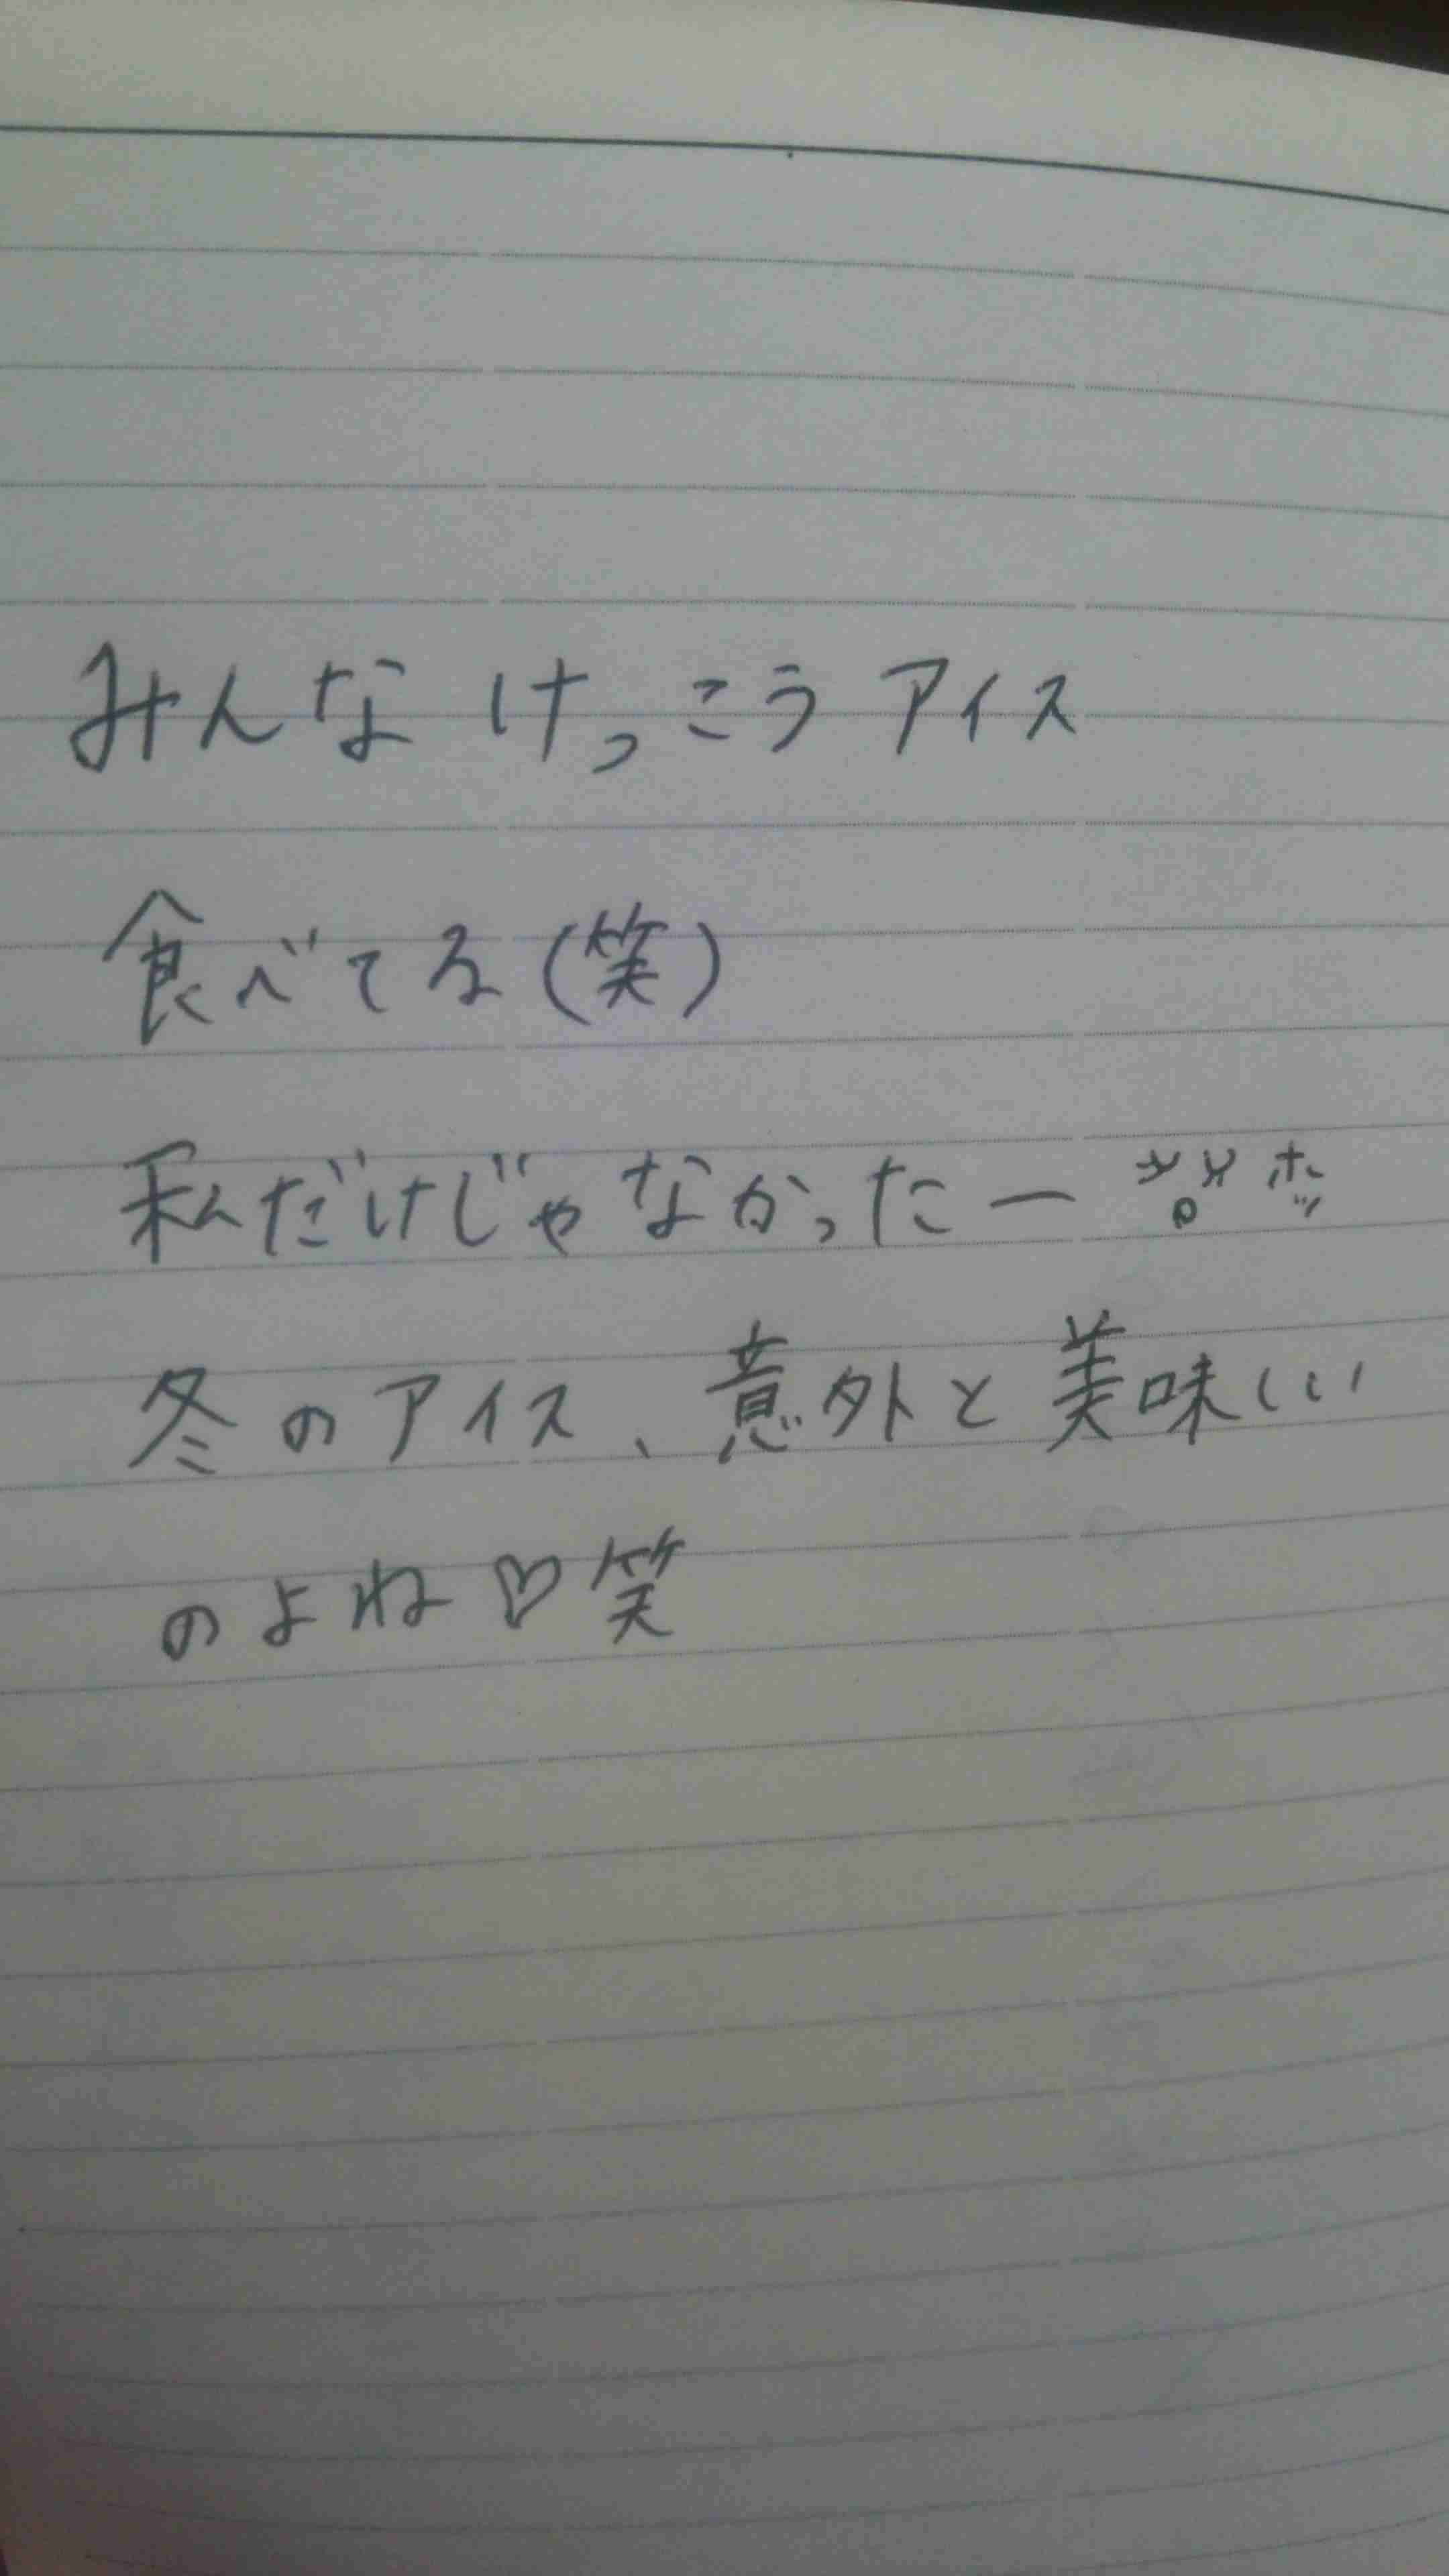 みんなけっこうアイス
食べてる(笑)
私だけじゃなかったー ホッ
冬のアイス、意外と美味しい
のよね♡笑